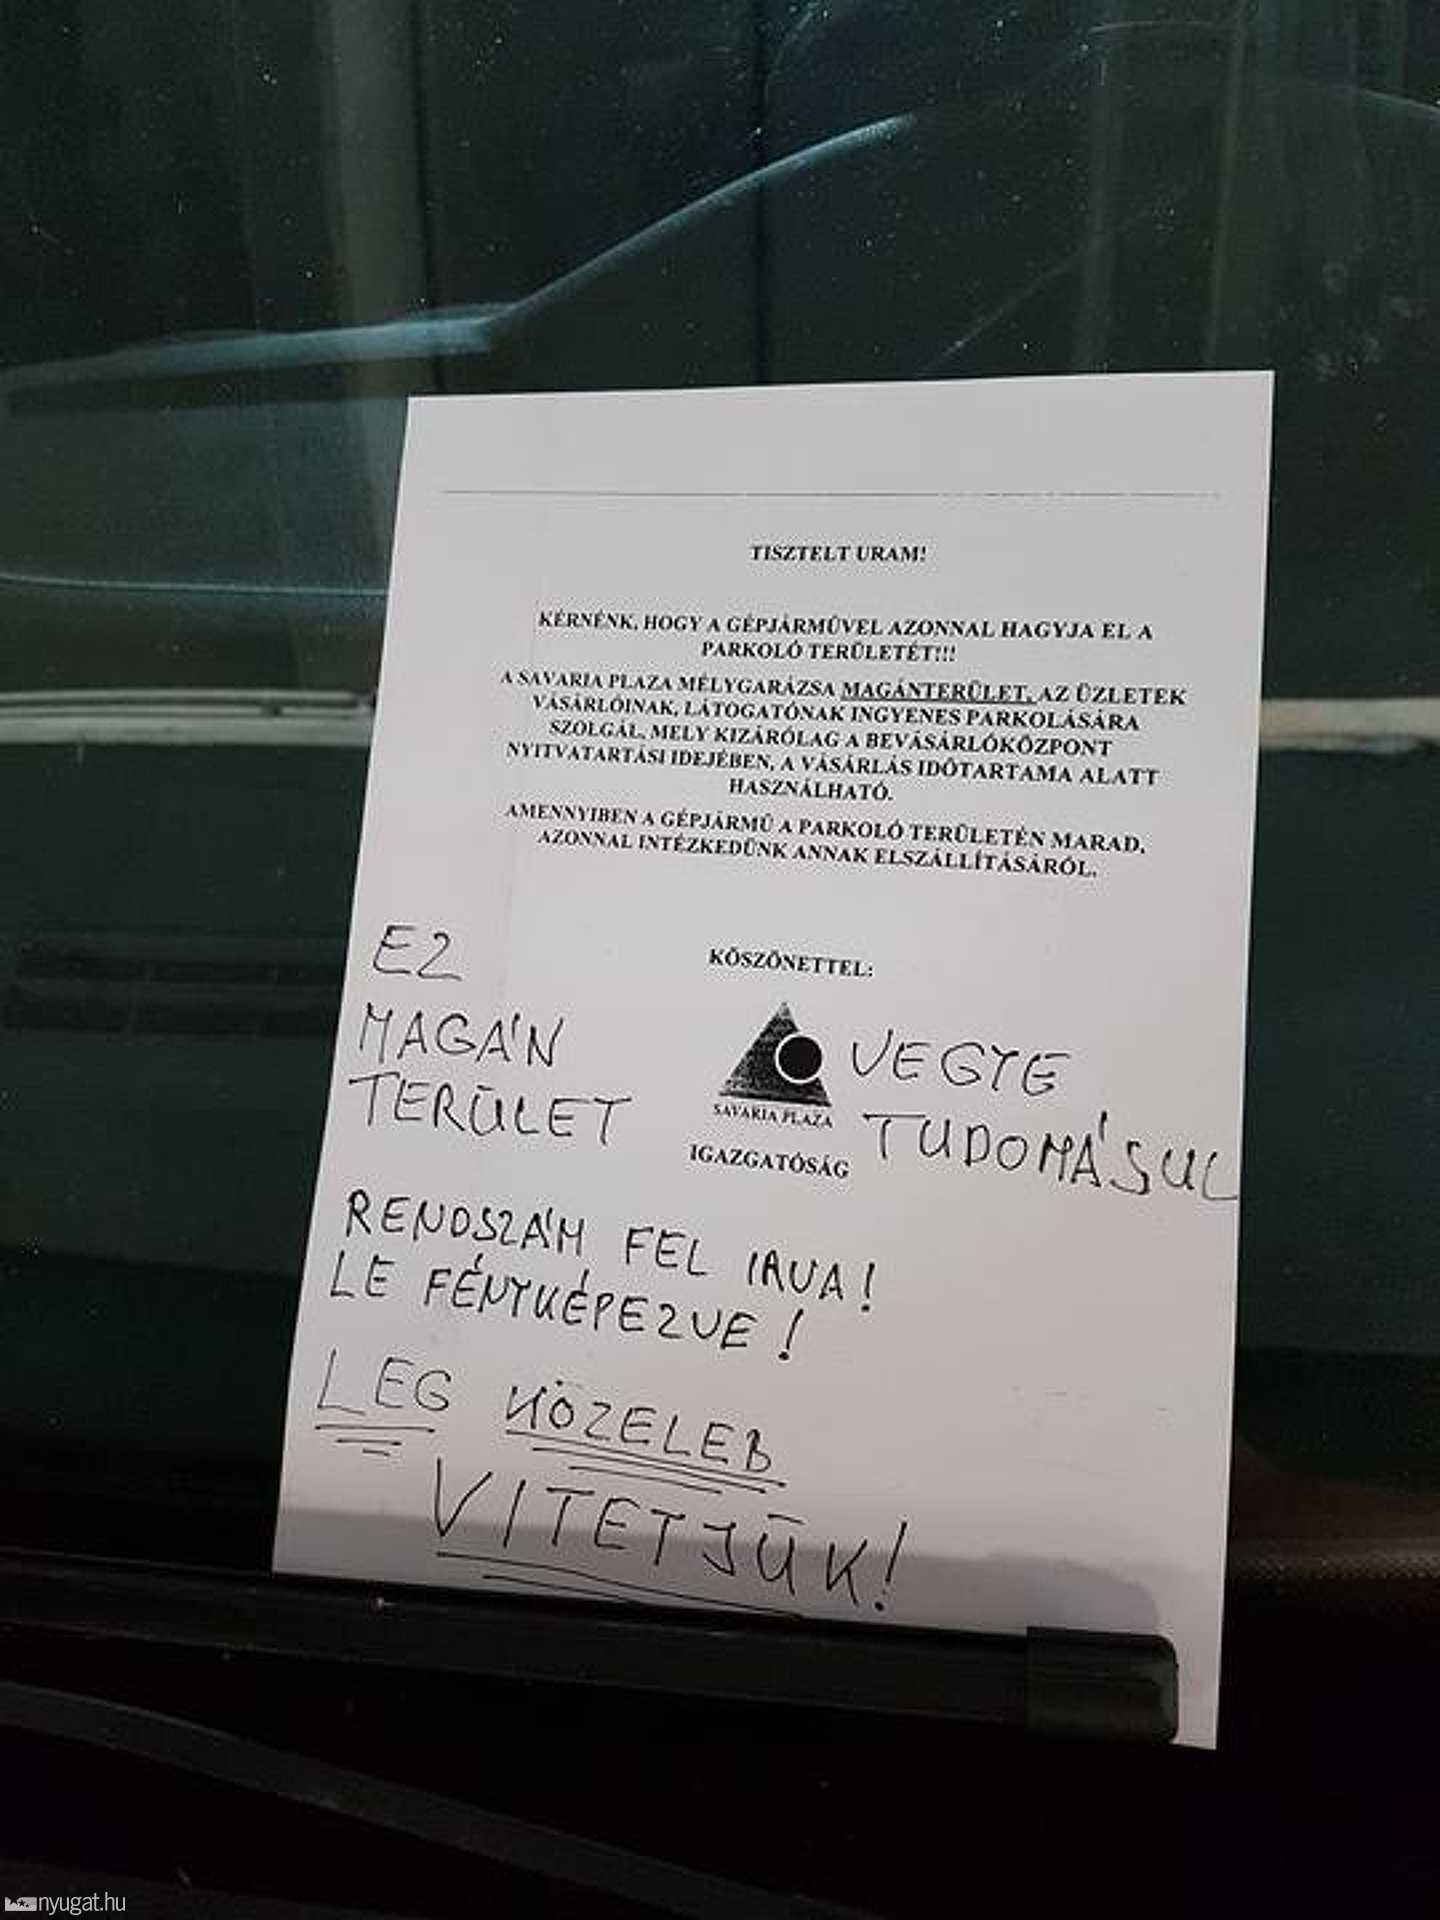 TISZTELT URAM!
KÉRNÉNK, HOGY A GÉPJÁRMŰVEL AZONNAL HAGYJA EL A
PARKOLÓ TERÜLETÉT!!!
A SAVARIA PLAZA MÉLYGARÁZSA MAGÁNTERÜLET, AZ ÜZLETEK
VÁSÁRLÓINAK, LÁTOGATÓNAK INGYENES PARKOLÁSÁRA
SZOLGÁL, MELY KIZÁRÓLAG A BEVÁSÁRLÓKÖZPONT
NYITVATARTÁSI IDEJÉBEN, A VÁSÁRLÁS IDŐTARTAMA ALATT
HASZNÁLHATÓ.
AMENNYIBEN A GÉPJÁRMŰ A PARKOLÓ TERÜLETÉN MARAD,
AZONNAL INTÉZKEDÜNK ANNAK ELSZÁLLÍTÁSÁRÓL.
KÖSZÖNETTEL:
SAVARIA PLAZA
IGAZGATÓSÁG
EZ
MAGÁN
TERÜLET
VEGYE
TUDOMÁSUL
RENDSZÁM FEL IRVA!
LE FÉNYKÉPEZVE!
LEG KÖZELEB
VITETJÜK!
nyugat.hu